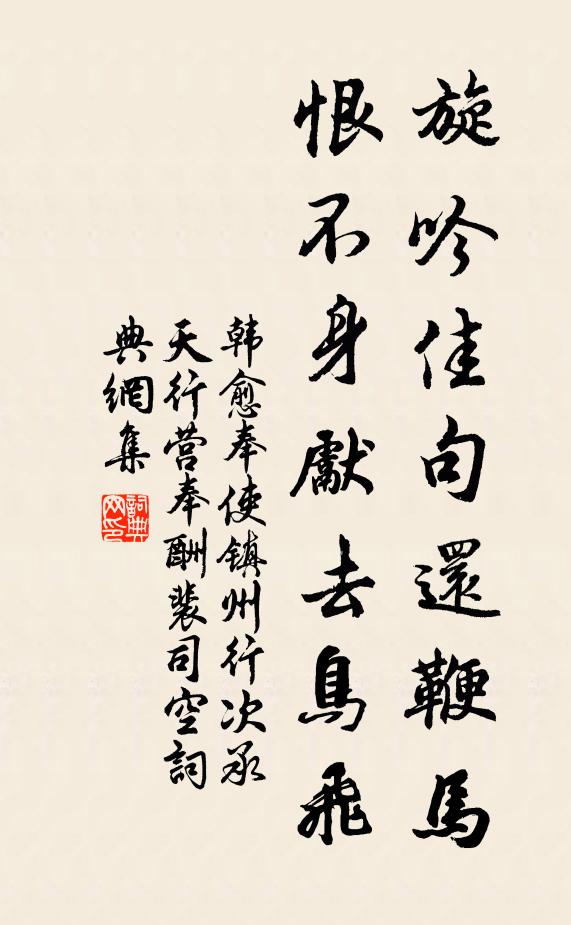 旋吟佳句還鞭馬
恨不身獻去鳥飛
韩愈奉使镇州行次承
天行营奉酬裴司空詞
典網集
詞典
网印